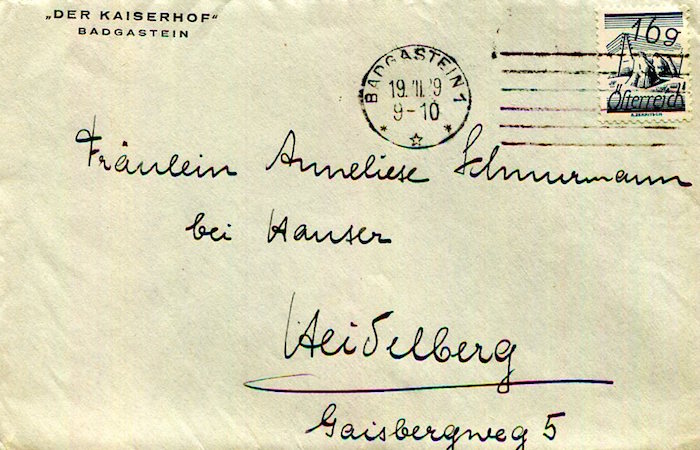 „DER KAISERHOF“
BADGASTEIN
BADGASTEIN 1
9-10
16g
Österreich
Fräulein Anneliese Schnurmann
bei Hauser
Heidelberg
Gaisbergweg 5